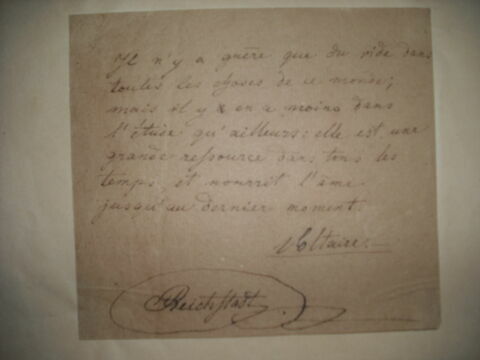 Il n'y a guère que du vide dans
toutes les choses de ce monde;
mais il y en a moins dans
l'étude qu'ailleurs: elle est une
grande ressource dans tous les
temps et nourrit l'âme
jusqu'au dernier moment.
Voltaire.
Reichstadt